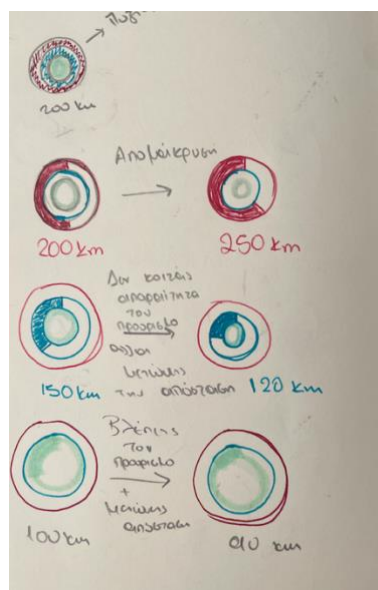 200 km
Απομάκρυση
200 km
250 km
Δεν κοιτάς
απαραίτητα
τον
προορισμό
αλλά
μειώνεις
την απόσταση
150 km
120 km
Βλέπεις
τον
προορισμό
+
μειώνεις
απόσταση
100 km
90 km